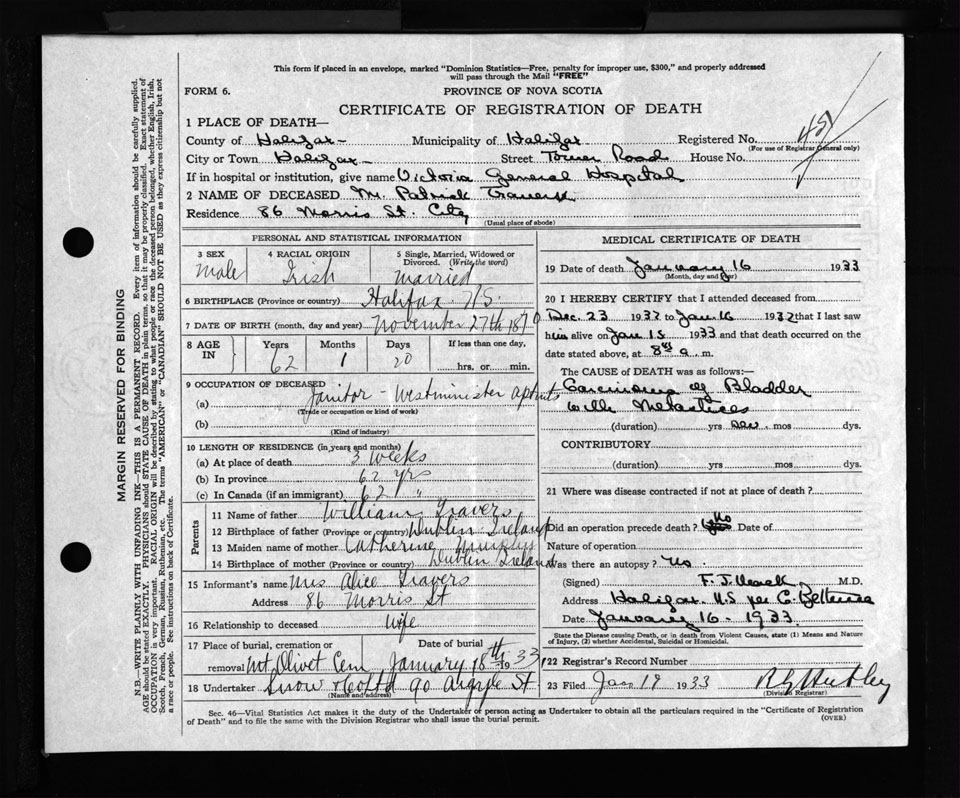 This form if placed in an envelope, marked "Dominion Statistics—Free, penalty for improper use, $300," and properly addressed
will pass through the Mail "FREE"
FORM 6. PROVINCE OF NOVA SCOTIA
CERTIFICATE OF REGISTRATION OF DEATH
1 PLACE OF DEATH—
County of Halifax Municipality of Halifax Registered No.
(For use of Registrar General only)
City or Town Halifax Street Tower Road House No.
If in hospital or institution, give name Victoria General Hospital
2 NAME OF DECEASED Mr Patrick Travers
Residence 86 Morris St. City
(Usual place of abode)
PERSONAL AND STATISTICAL INFORMATION
3 SEX 4 RACIAL ORIGIN 5 Single, Married, Widowed or Divorced. (Write the word)
Male Irish Married
6 BIRTHPLACE (Province or country) Halifax N.S.
7 DATE OF BIRTH (month, day and year) November 27th 1870
8 AGE IN Years Months Days If less than one day,
62 1 20 hrs. or min.
9 OCCUPATION OF DECEASED
(a) Janitor - Westminister aptmts
(Trade or occupation or kind of work)
(b)
(Kind of industry)
10 LENGTH OF RESIDENCE (in years and months)
(a) At place of death 3 weeks
(b) In province 62 yrs
(c) In Canada (if an immigrant) 62 "
Parents
11 Name of father William Travers
12 Birthplace of father (Province or country) Dublin Ireland
13 Maiden name of mother Catherine Murphy
14 Birthplace of mother (Province or country) Dublin Ireland
15 Informant's name Mrs Alice Travers
Address 86 Morris St
16 Relationship to deceased Wife
17 Place of burial, cremation or removal Date of burial
Mt Olivet Cem January 18th 1933
18 Undertaker Snow & Co Ltd 90 Argyle St
(Name and address)
MEDICAL CERTIFICATE OF DEATH
19 Date of death January 16 1933
(Month, day and year)
20 I HEREBY CERTIFY that I attended deceased from
Dec. 23 1932 to Jan. 16 1932 that I last saw
him alive on Jan 15 1933 and that death occurred on the
date stated above, at a. m.
The CAUSE OF DEATH was as follows:
Carcinoma of Bladder
with Metastices
(duration) yrs mos dys.
CONTRIBUTORY
(duration) yrs mos dys.
21 Where was disease contracted if not at place of death?
Did an operation precede death? No Date of
Nature of operation
Was there an autopsy? No.
(Signed) F. J. M.D.
Address Halifax N.S per C.
Date January 16 - 1933.
State the Disease causing Death, or in death from Violent Causes, state (1) Means and Nature
of Injury, (2) whether Accidental, Suicidal or Homicidal.
22 Registrar's Record Number
23 Filed Jan 19 1933
(Division Registrar)
Sec. 46—Vital Statistics Act makes it the duty of the Undertaker or person acting as Undertaker to obtain all the particulars required in the "Certificate of Registration
of Death" and to file the same with the Division Registrar who shall issue the burial permit.
(OVER)
MARGIN RESERVED FOR BINDING
N.B.—WRITE PLAINLY WITH UNFADING INK—THIS IS A PERMANENT RECORD. Every item of information should be carefully supplied.
AGE should be stated EXACTLY. PHYSICIANS should STATE CAUSE OF DEATH in plain terms, so that it may be properly classified. Exact statement of
OCCUPATION is very important. RACIAL ORIGIN will be described by stating to what people or race the deceased person belonged, whether English, Irish,
Scotch, French, German, Russian, Ruthenian, etc. The terms "AMERICAN" or "CANADIAN" SHOULD NOT BE USED as they express citizenship but not
a race or people. See instructions on back of Certificate.